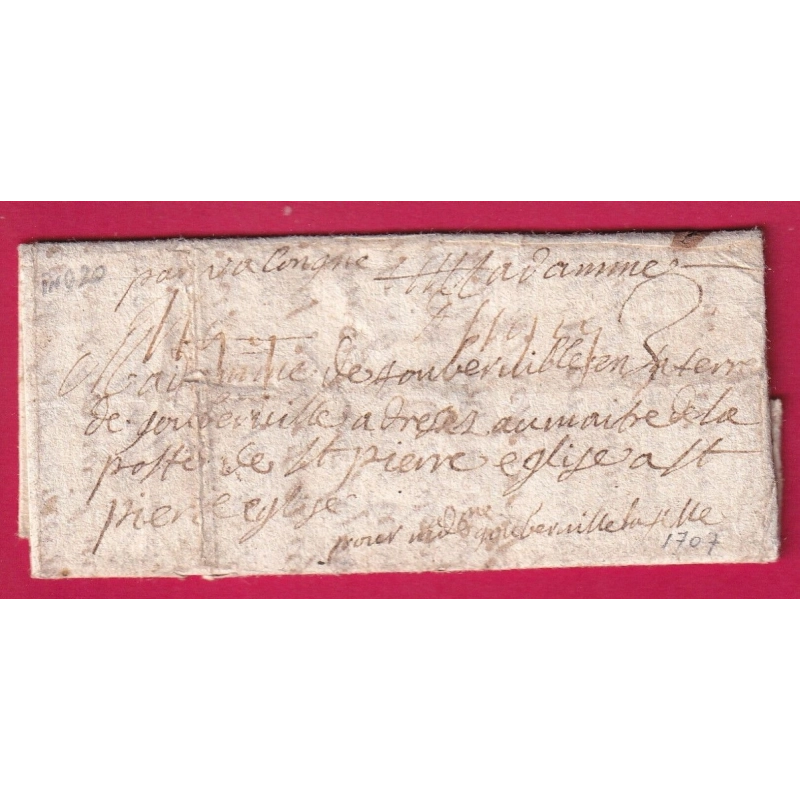 par valongne Madamme
Madamme de gouberville en sa terre
de gouberville adresez au maitre de la
poste de st pierre eglise a st
pierre eglise
pour mdme gouberville la
1707